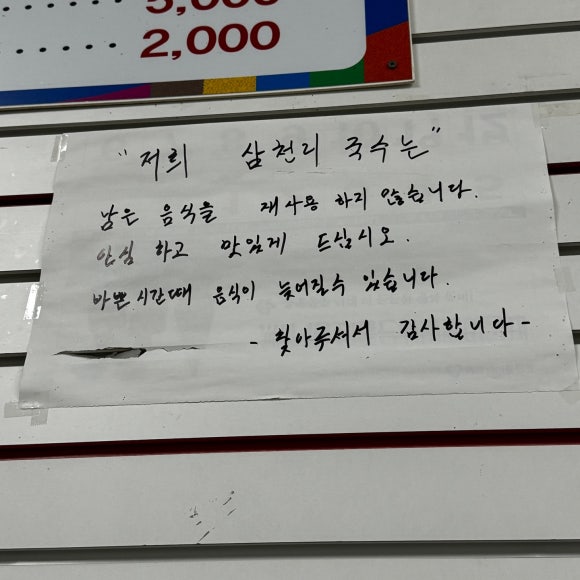 5,000
2,000
"저희 삼천리 국수는"
남은 음식을 재사용 하지 않습니다.
안심 하고 맛있게 드십시오.
바쁜 시간때 음식이 늦어질수 있습니다.
- 찾아주셔서 감사합니다 -